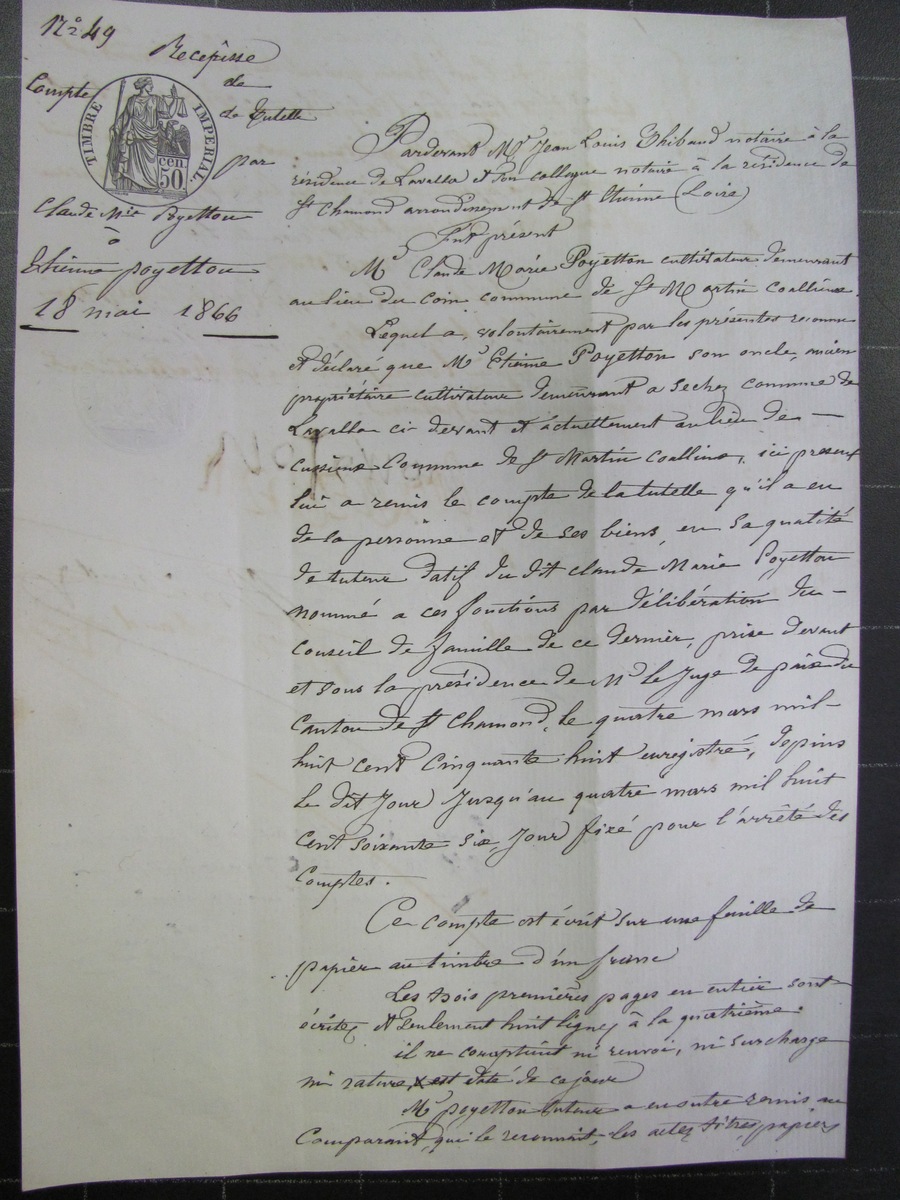 N° 49
Recepisse
de
Compte
de Tutelle
TIMBRE IMPERIAL
50 cen
par
Claude Mie Poyetton
à
Etienne poyetton
18 mai 1866
Pardevant Me Jean Louis Thibaud notaire à la
résidence de Lavalla et son collegue notaire à la résidence de
St Chamond arrondissement de St Etienne (Loire)
Fut présent
Mr Claude Marie Poyetton cultivateur demeurant
au lieu du coin commune de St Martin Coallieux.
Lequel a, volontairement par les présentes reconnu
et déclaré que Mr Etienne Poyetton son oncle, ancien
propriétaire cultivateur demeurant a Sechez commune de
Lavalla ci-devant et actuellement au lieu de —
commune de St Martin Coallieux, ici present
lui a remis le compte de la tutelle qu'il a eu
de la personne et de ses biens, en sa qualité
de tuteur datif du dit Claude Marie Poyetton
nommé a ces fonctions par délibération du —
Conseil de famille de ce dernier, prise devant
et sous la présidence de Mr le Juge de paix du
Canton de St Chamond, le quatre mars mil-
huit cent cinquante huit enregistré, depuis
le dit jour jusqu'au quatre mars mil huit
cent soixante six, jour fixé pour l'arrêté des
comptes.
Ce compte est écrit sur une feuille de
papier au timbre d'un franc
Les trois premières pages en entier sont
écrites et seulement huit lignes à la quatrième.
il ne comptient ni renvoi, ni surcharge
ni rature, est daté de ce jour
Mr poyetton tuteur a en outre remis au
Comparant, qui le reconnait, les actes, titres, papiers